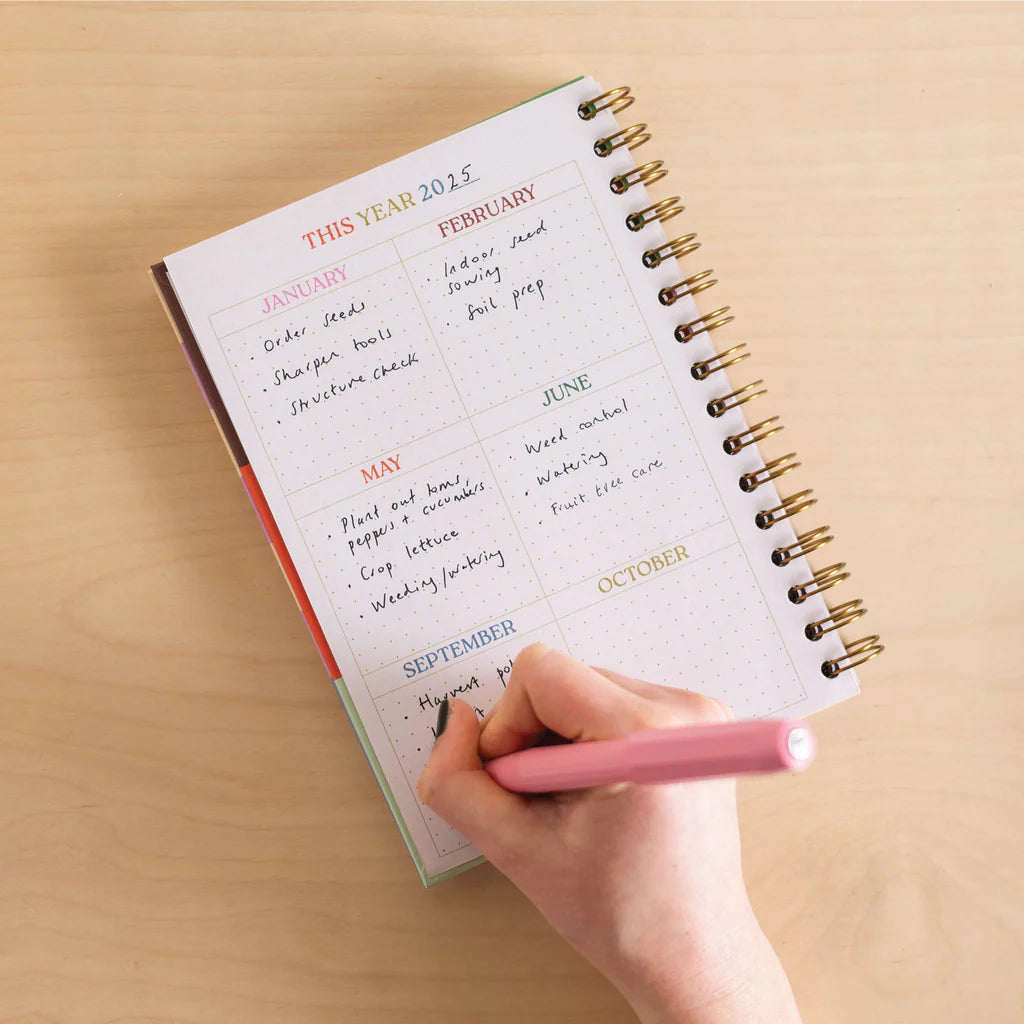 THIS YEAR 2025
JANUARY
• Order seeds
• Sharpen tools
• Structure check
FEBRUARY
• Indoor seed
sowing
• Soil prep
MAY
• Plant out toms,
peppers + cucumbers
• Crop lettuce
• Weeding/watering
JUNE
• Weed control
• Watering
• Fruit tree care
SEPTEMBER
• Harvest
OCTOBER